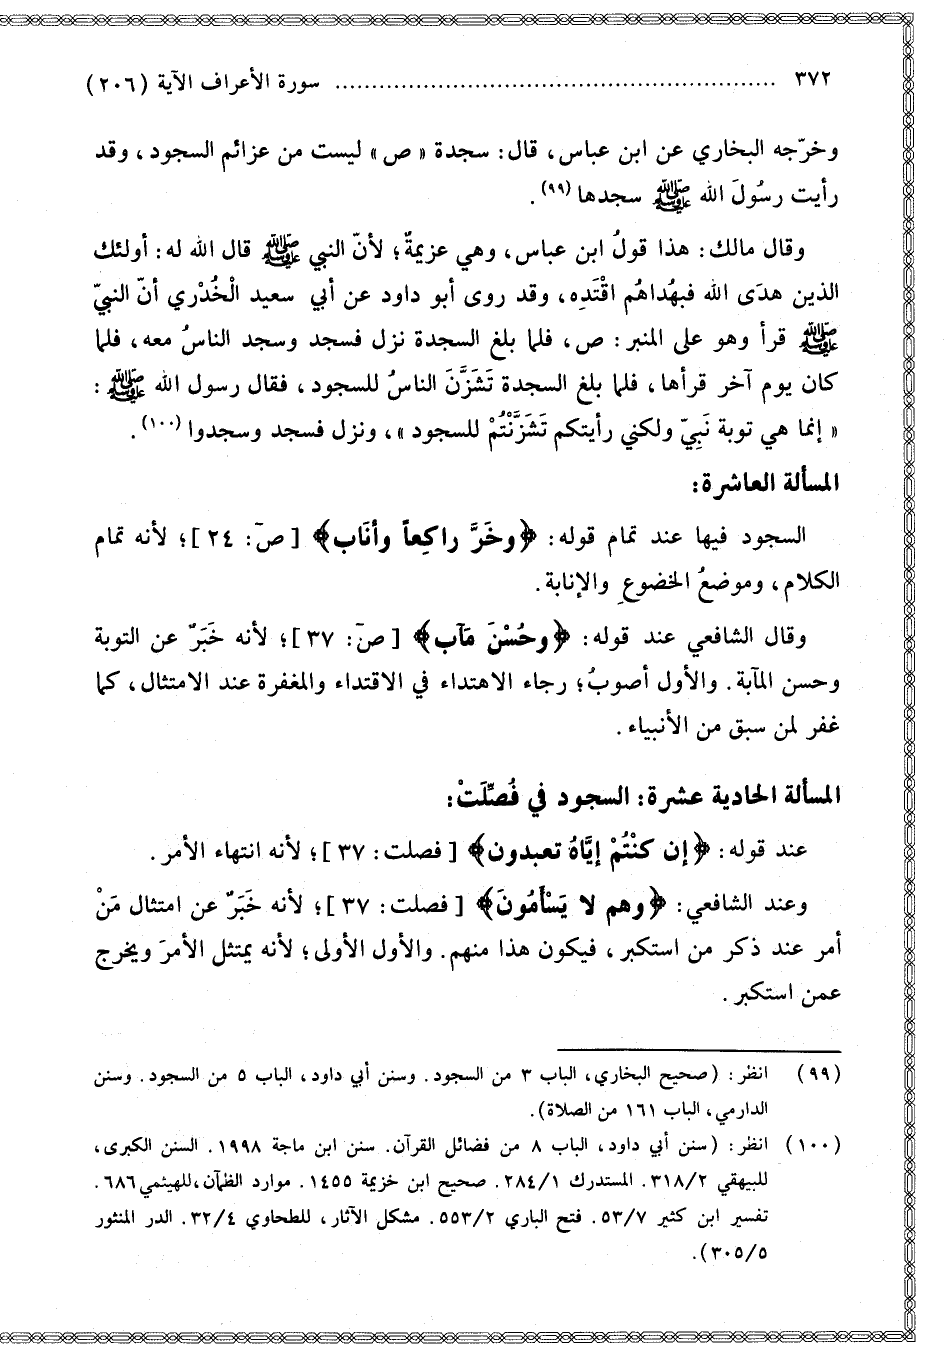 ٣٧٢ ............................................................ سورة الأعراف الآية (٢٠٦)
وخرّجه البخاري عن ابن عباس، قال: سجدة «ص» ليست من عزائم السجود، وقد
رأيت رسُولَ الله ﷺ سجدها (٩٩).
وقال مالك: هذا قولُ ابن عباس، وهي عزيمةٌ؛ لأنّ النبي ﷺ قال الله له: أولئك
الذين هدَى الله فبهُداهُم اقْتَدِه، وقد روى أبو داود عن أبي سعيد الْخُدْري أنّ النبيّ
ﷺ قرأ وهو على المنبر: ص، فلما بلغ السجدة نزل فسجد وسجد الناسُ معه، فلما
كان يوم آخر قرأها، فلما بلغ السجدة تَشَزَّنَ الناسُ للسجود، فقال رسول الله ﷺ:
«إنما هي توبة نَبِيّ ولكني رأيتكم تَشَزَّنْتُمْ للسجود»، ونزل فسجد وسجدوا (١٠٠).
المسألة العاشرة:
السجود فيها عند تمام قوله: ﴿وخَرَّ راكِعاً وأنَاب﴾ [صٓ: ٢٤]؛ لأنه تمام
الكلام، وموضعُ الخضوعِ والإنابة.
وقال الشافعي عند قوله: ﴿وحُسْنَ مَآب﴾ [صٓ: ٣٧]؛ لأنه خَبَرٌ عن التوبة
وحسن المآبة. والأول أصوبُ؛ رجاء الاهتداء في الاقتداء والمغفرة عند الامتثال، كما
غفر لمن سبق من الأنبياء.
المسألة الحادية عشرة: السجود في فُصِّلَتْ:
عند قوله: ﴿إن كنْتُمْ إيَّاهُ تعبدون﴾ [فصلت: ٣٧]؛ لأنه انتهاء الأمر.
وعند الشافعي: ﴿وهم لا يَسْأَمُونَ﴾ [فصلت: ٣٧]؛ لأنه خَبَرٌ عن امتثال مَنْ
أمر عند ذكر من استكبر، فيكون هذا منهم. والأول الأولى؛ لأنه يمتثل الأمرَ ويخرج
عمن استكبر.
(٩٩) انظر: (صحيح البخاري، الباب ٣ من السجود. وسنن أبي داود، الباب ٥ من السجود. وسنن
الدارمي، الباب ١٦١ من الصلاة).
(١٠٠) انظر: (سنن أبي داود، الباب ٨ من فضائل القرآن. سنن ابن ماجة ١٩٩٨. السنن الكبرى،
للبيهقي ٣١٨/٢. المستدرك ٢٨٤/١. صحيح ابن خزيمة ١٤٥٥. موارد الظمآن،للهيثمي ٦٨٦.
تفسير ابن كثير ٥٣/٧. فتح الباري ٥٥٣/٢. مشكل الآثار، للطحاوي ٣٢/٤. الدر المنثور
٣٠٥/٥).